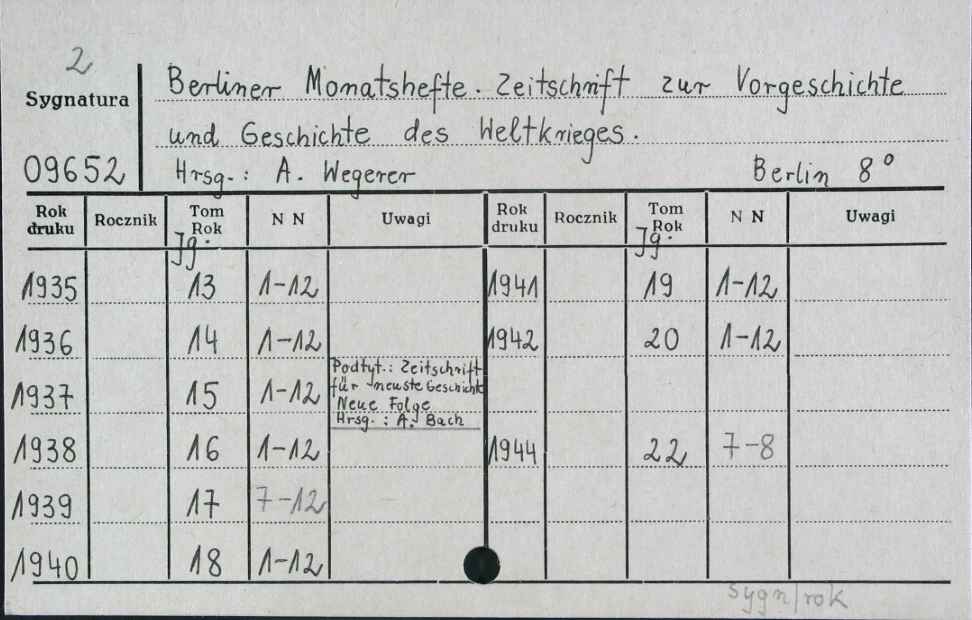 2
Sygnatura
09652
Berliner Monatshefte. Zeitschrift zur Vorgeschichte
und Geschichte des Weltkrieges.
Hrsg.: A. Wegerer Berlin 8°
Rok druku Rocznik Tom Rok Jg. N N Uwagi Rok druku Rocznik Tom Rok Jg. N N Uwagi
1935 13 1-12 1941 19 1-12
1936 14 1-12 1942 20 1-12
Podtyt.: Zeitschrift
für neuste Geschichte
Neue Folge
Hrsg.: A. Bach
1937 15 1-12
1938 16 1-12 1944 22 7-8
1939 17 7-12
1940 18 1-12
sygn/rok